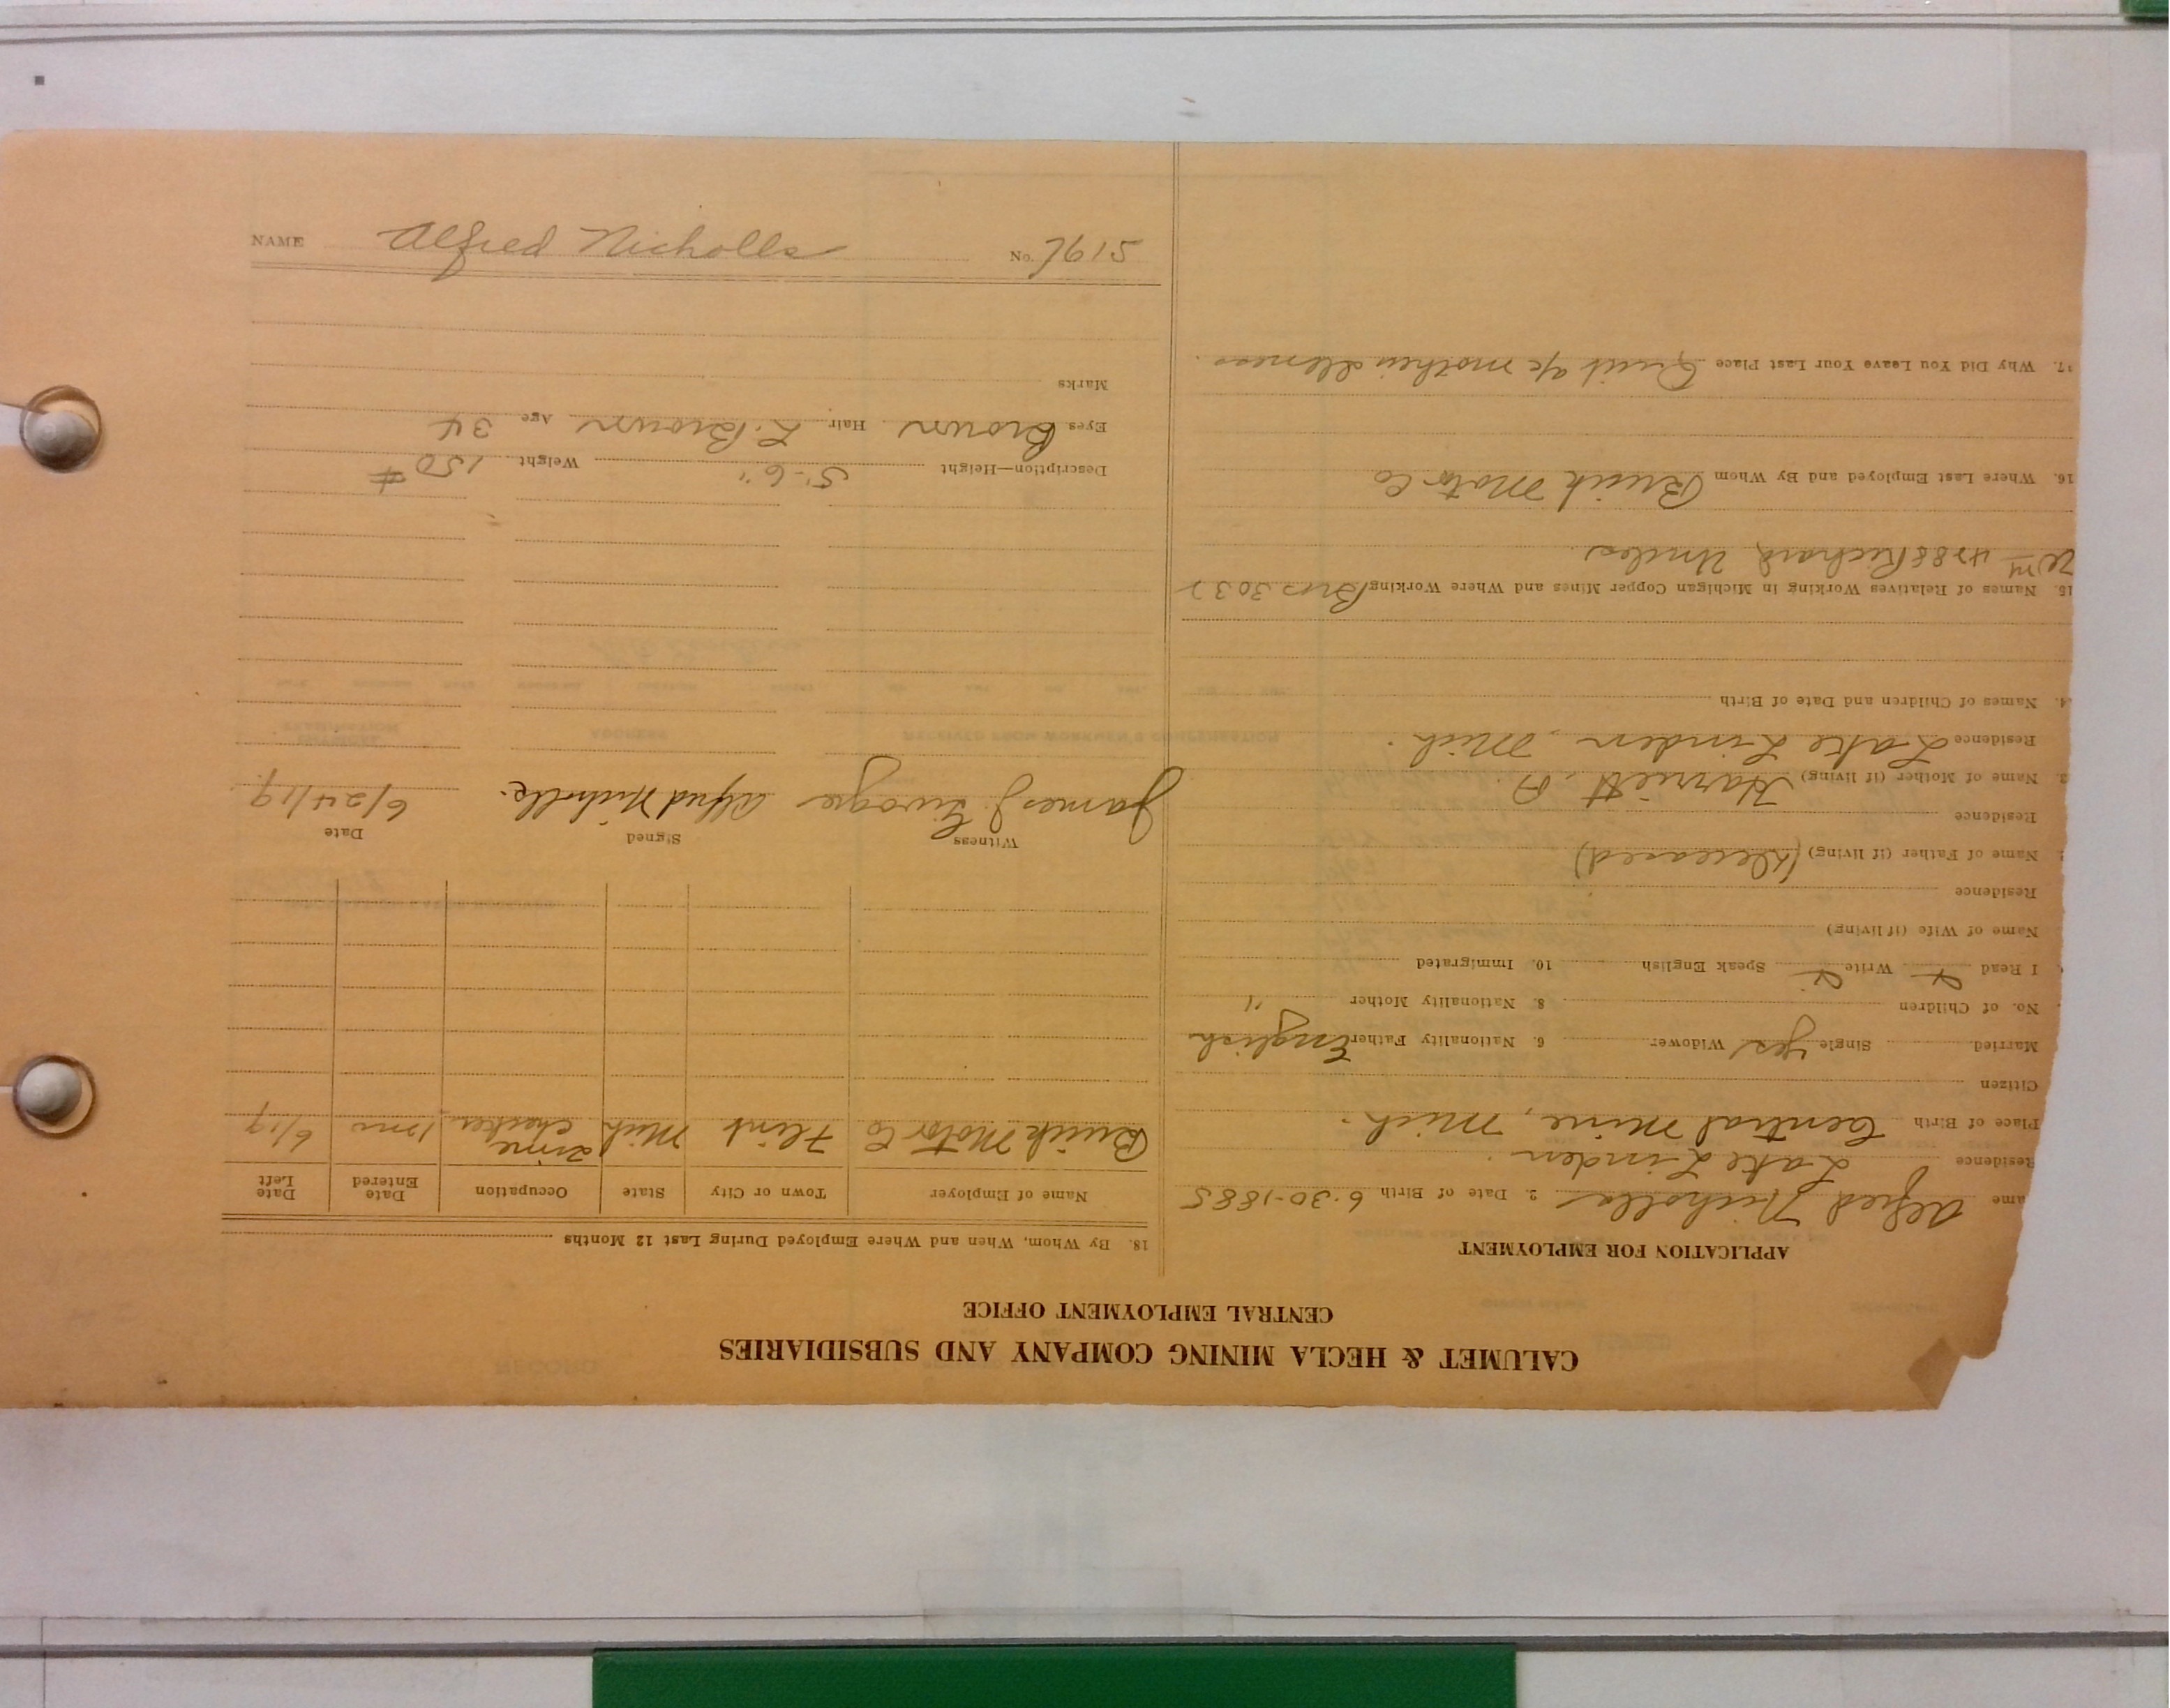 CALUMET & HECLA MINING COMPANY AND SUBSIDIARIES
CENTRAL EMPLOYMENT OFFICE
APPLICATION FOR EMPLOYMENT
ame Alfred Nicholls 2. Date of Birth 6-30-1885
Residence Lake Linden.
Place of Birth Central Mine, Mich.
Citizen
Married Single yes Widower 6. Nationality Father English
No. of Children 8. Nationality Mother "
I Read Write Speak English 10. Immigrated
Name of Wife (if living)
Residence
Name of Father (if living) (Deceased)
Residence
Name of Mother (if living) Harriett. A
Residence Lake Linden, Mich.
4. Names of Children and Date of Birth
15. Names of Relatives Working in Michigan Copper Mines and Where Working Bros 303
Wm 4288 Richard, Uncles.
16. Where Last Employed and By Whom Buick Motor Co
17. Why Did You Leave Your Last Place Quit a/c mothers illness.
18. By Whom, When and Where Employed During Last 12 Months
Name of Employer Town or City State Occupation Date Entered Date Left
Buick Motor Co Flint Mich Time Checker 1 mo 6/19
Witness Signed Date
James J. Alfred Nicholls. 6/24/19
Description—Height 5'-6" Weight 150 #
Eyes Brown Hair L. Brown Age 34
Marks
NAME Alfred Nicholls No. 7615
RECORD
RECEIVED FROM WORKMEN'S COMPENSATION
ADDRESS
PHYSICAL EXAMINATION